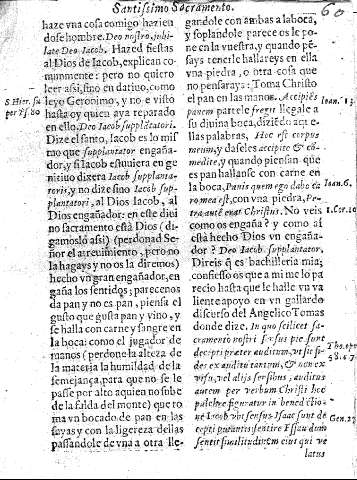 Santissimo Sacramento.
60
haze vna cosa comigo hazien
dose hombre. Deo nostro, iubi-
late Deo Iacob. Hazed fiestas
al Dios de Iacob, explican co
munmente: pero no quiero
leer assi, sino en datiuo, como
leyo Geronimo, y no e visto
hasta oy quien aya reparado
en ello, Deo Iacob supplātatori.
Dize el santo, Iacob es lo mis
mo que supplantator engaña-
dor, y si Iacob estuuiera en ge-
nitiuo dixera Iacob supplanta-
toris, y no dize sino Iacob sup-
plantatori, al Dios Iacob, al
Dios engañador: en este diui
no sacramento està Dios (di-
gamoslo assi) (perdonad Se-
ñor el atreuimiento, pero no
la hagays y no os la diremos)
hecho vn gran engañador, en
gaña los sentidos; parecenos
da pan y no es pan, piensa el
gusto que gusta pan y vino, y
se halla con carne y sangre en
la boca: como el jugador de
manos (perdone la alteza de
la materia la humildad de la
semejança, para que no se le
passe por alto aquien no sube
de la falda del monte) que to
ma vn bocado de pan en las
suyas y con la ligereza dellas
passandole de vna a otra lle-
S. Hier. su
per Ps. 80
gandole con ambas a la boca,
y soplandole parece os le po-
ne en la vuestra, y quando pē-
says tenerle hallareys en ella
vna piedra, o otra cosa que
no pensarays: Toma Christo
el pan en las manos. Accipiēs
panem partele fregit llegale a
su diuina boca, diziēdo aque
ellas palabras, Hoc est corpus
meum, y daseles accipite & co-
medite, y quando piensan que
es pan hallanse con carne en
la boca, Panis quem ego dabo ca
ro mea est, con vna piedra, Pe-
tra autē erat Christus. No veis
como os engaña? y como aſ
está hecho Dios vn engaña
dor? Deo Iacob, supplantatori.
Direis q̃ es bachilleria mia;
confiesso os que a mi me lo pa
recio hasta que le halle vn va
liente apoyo en vn gallardo
discurso del Angelico Tomas
donde dize. In quo scilicet sa-
cramento nostri sensus pie sunt
decepti præter auditum, vt sit fi-
des ex auditu tantum, & non ex
visu, vel alijs sensibus, auditus
autem per verbum Christi hoc
pulchre figuratur in benedictio-
ne Iacob vbi sensus Isaac sunt de
cepti putantis sentire Esau dum
sentit similitudinem eius qui ve
latus
Ioan. 13.
Ioan. 6.
1. Cor. 10
Tho. opu
58. c. 7.
Gen. 27